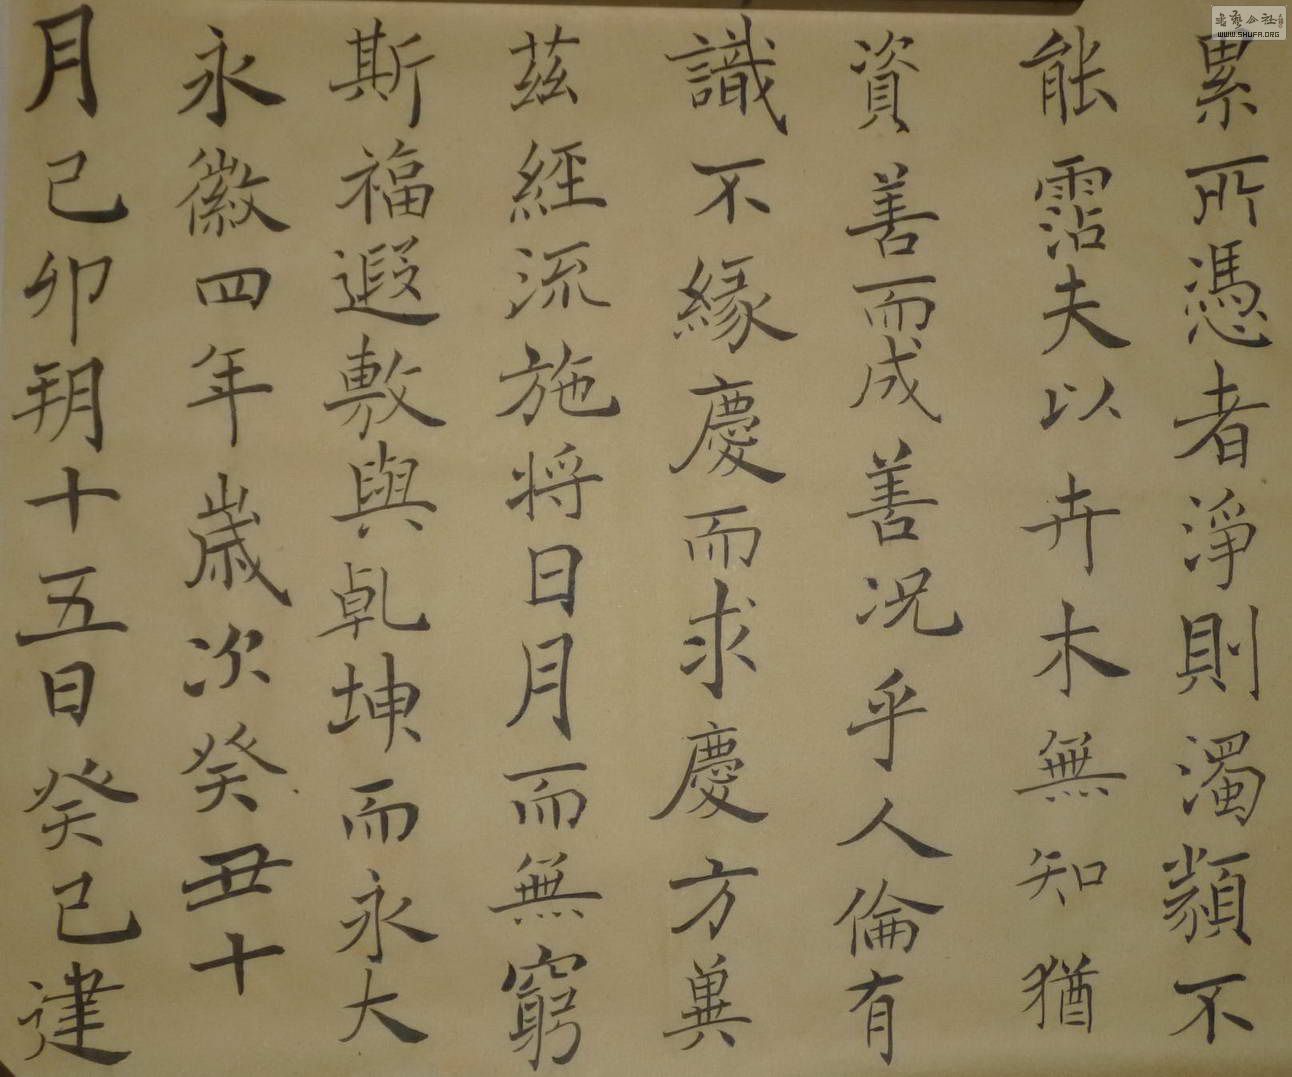 累所憑者淨則濁類不
能霑夫以卉木無知猶
資善而成善況乎人倫有
識不緣慶而求慶方冀
茲經流施将日月而無窮
斯福遐敷與乹坤而永大
永徽四年歲次癸丑十
月己卯朔十五日癸巳建
WWW.SHUFA.ORG